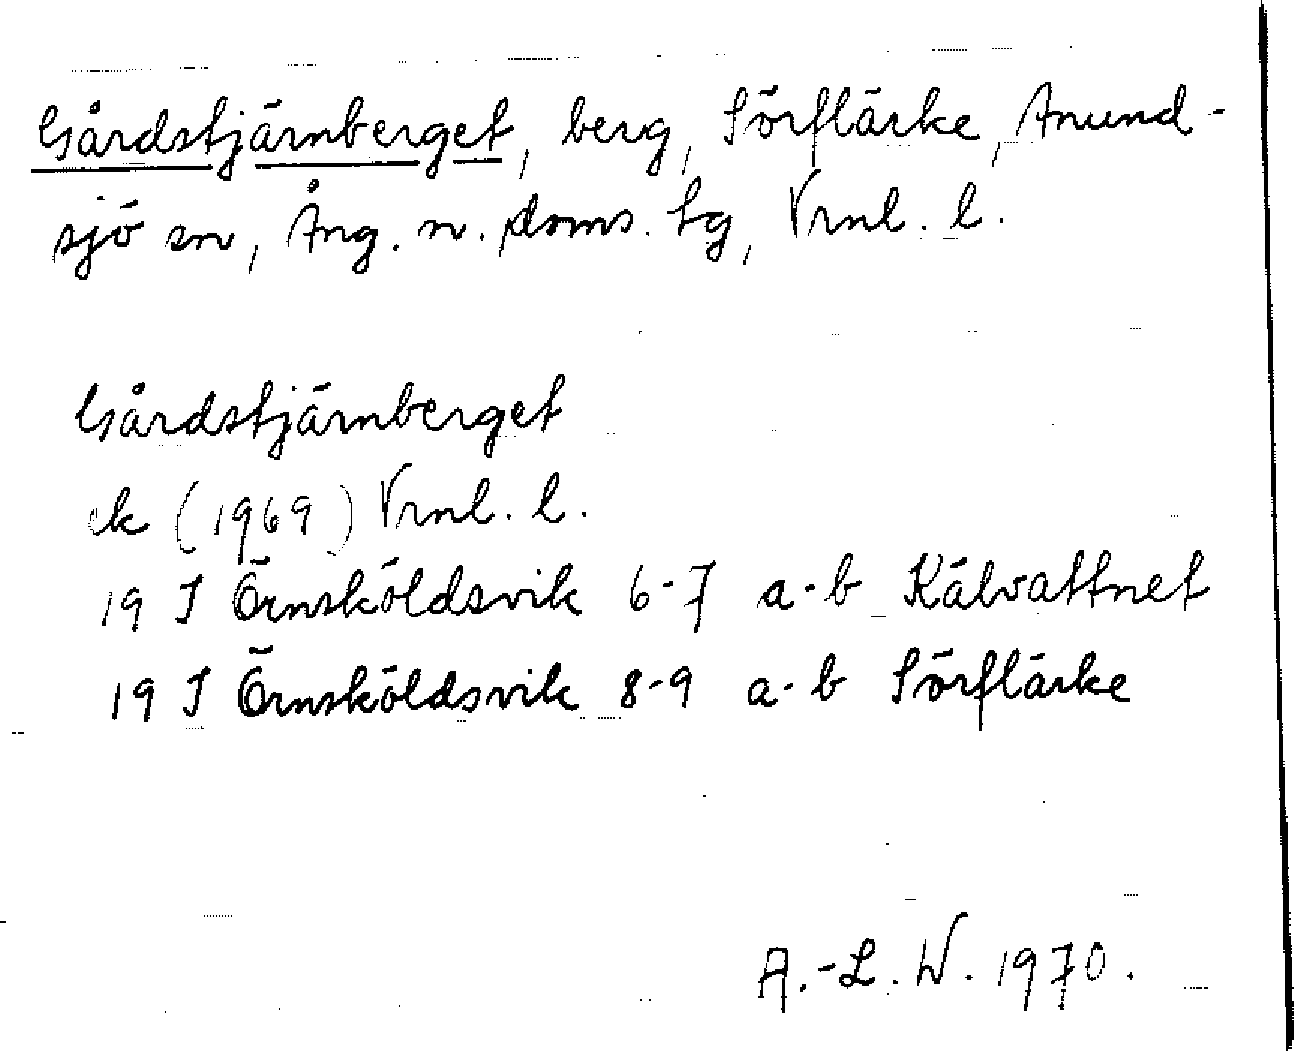 Gårdstjärnberget, berg, Sörflärke, Anund-
sjö sn, Ång. n. doms. tg, Vrnl. l.
Gårdstjärnberget
ek (1969) Vrnl. l.
19 J Örnsköldsvik 6-7 a-b Kälvattnet
19 J Örnsköldsvik 8-9 a-b Sörflärke
A.-L. W. 1970.